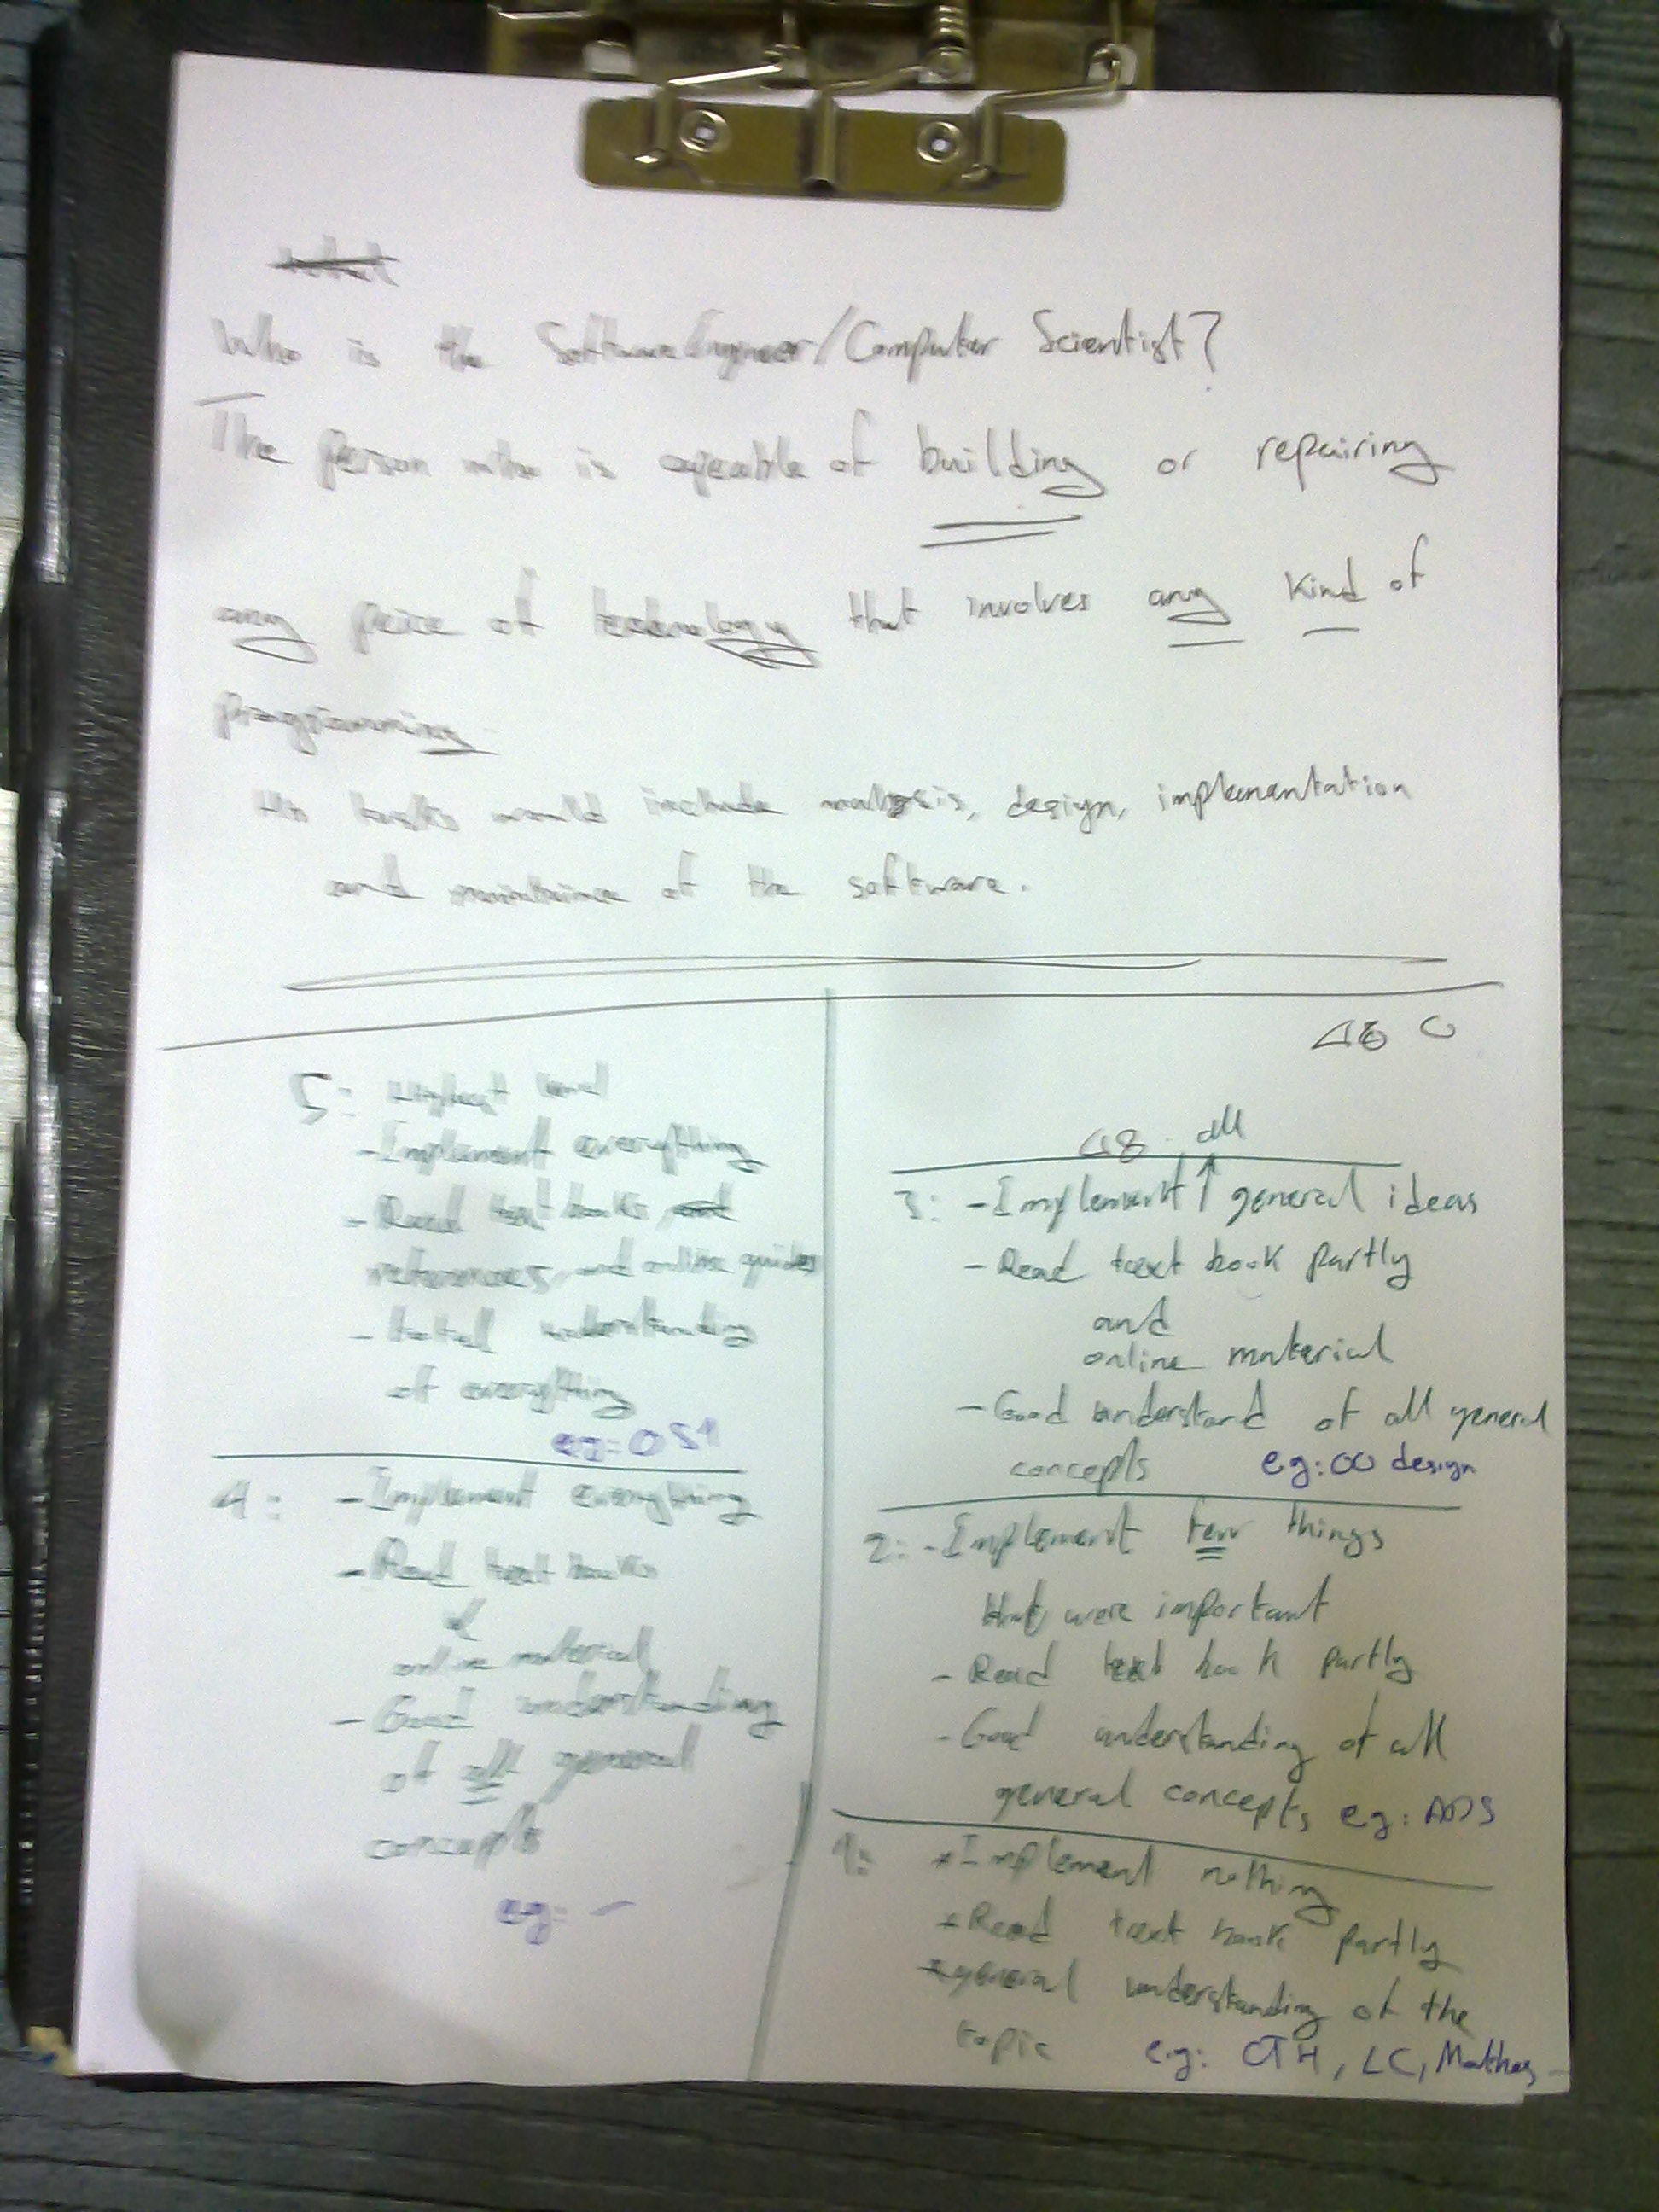 Who is the Software Engineer/Computer Scientist?
The person who is capable of building or repairing
any peice of technology that involves any kind of
programming
His tasks would include analysis, design, implementation
and maintaince of the software.
5: Highest level
- Implement everything
- Read text books and
references, and online guides
- total understanding
of everything
eg: OS1
4: - Implement everything
- Read text books
&
online material
- Good understanding
of all general
concepts
eg: -
all
3: - Implement ↑ general ideas
- Read text book partly
and
online material
- Good understand of all general
concepts eg: OO design
2: - Implement few things
that were important
- Read text book partly
- Good understanding of all
general concepts eg: ADS
1: * Implement nothing
* Read text book partly
* general understanding of the
topic e.g: CTH, LC, Mathes